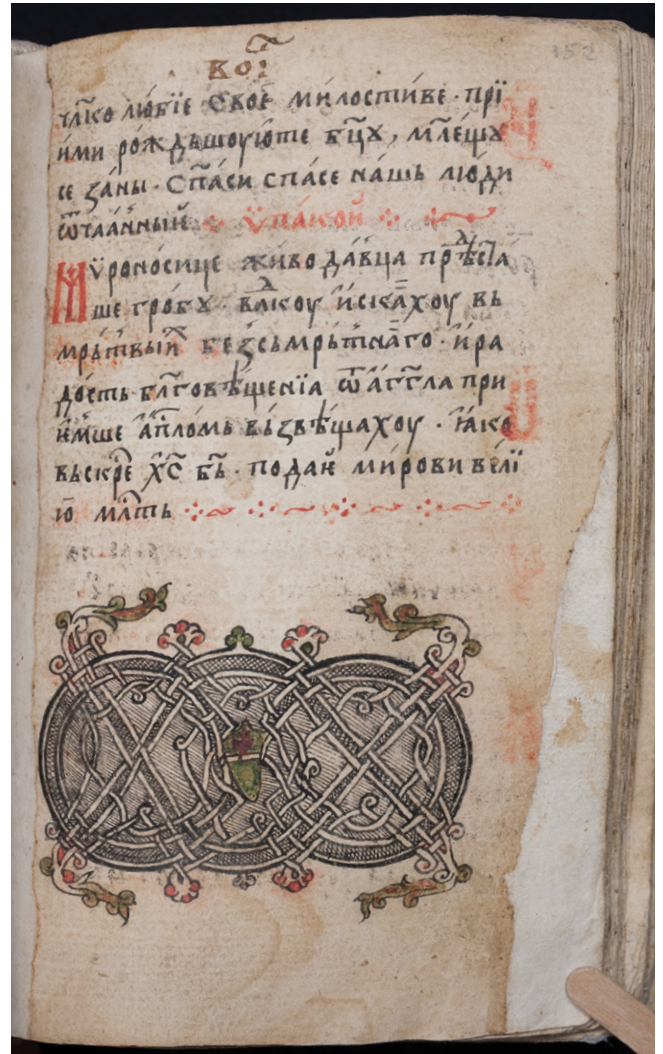 152
члко лю́бїе Своѐ ми́лости́ве · прї
ими ро́ждьшоую́ те бц҃ꙋ, мл҃ещꙋ
се за́ны · Сп҃а́си спа́се на́шь лю́ди
ѿчаа́нныӥ ѵ̈пако́й
Мѵ̈роно́сице живо да́вца прⷣѣста́
ше гро́бꙋ · влⷣкоу и҆ска́хоу вь
мрь́твыиⷯ бе́зсьмрь́тнаⷢ҇го · и҆ ра
до́сть блг҃овѣ́щенїа ѿ а҆́гг҃ла при
е҆́мше а҆пⷭ҇ломь вь́звѣщахоу · ꙗ҆́ко
вьскрⷭ҇е хⷭ҇с бь҃ · пода́и҆ ми́рови ве́лї
ю мл҃ть